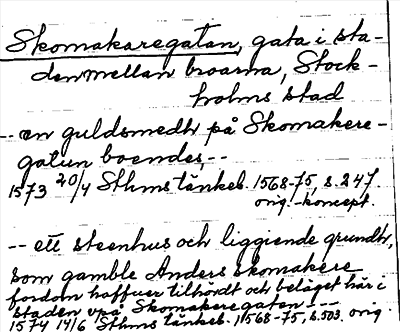 Skomakaregatan, gata i sta-
den mellan broarna, Stock-
holms stad
-- en guldsmedh på Skomakere-
gatun boendes, --
1573 20/4 Sthms tänkeb. 1568-75, s. 247.
orig.-koncept.
-- ett steenhus och liggiende grundh,
som gamble Anders skomakere
fordom haffuer tilhördt och beläget här i
staden vpå Skomakaregatan ---
1574 14/6 Sthms tänkeb. 1568-75, s. 503. orig.